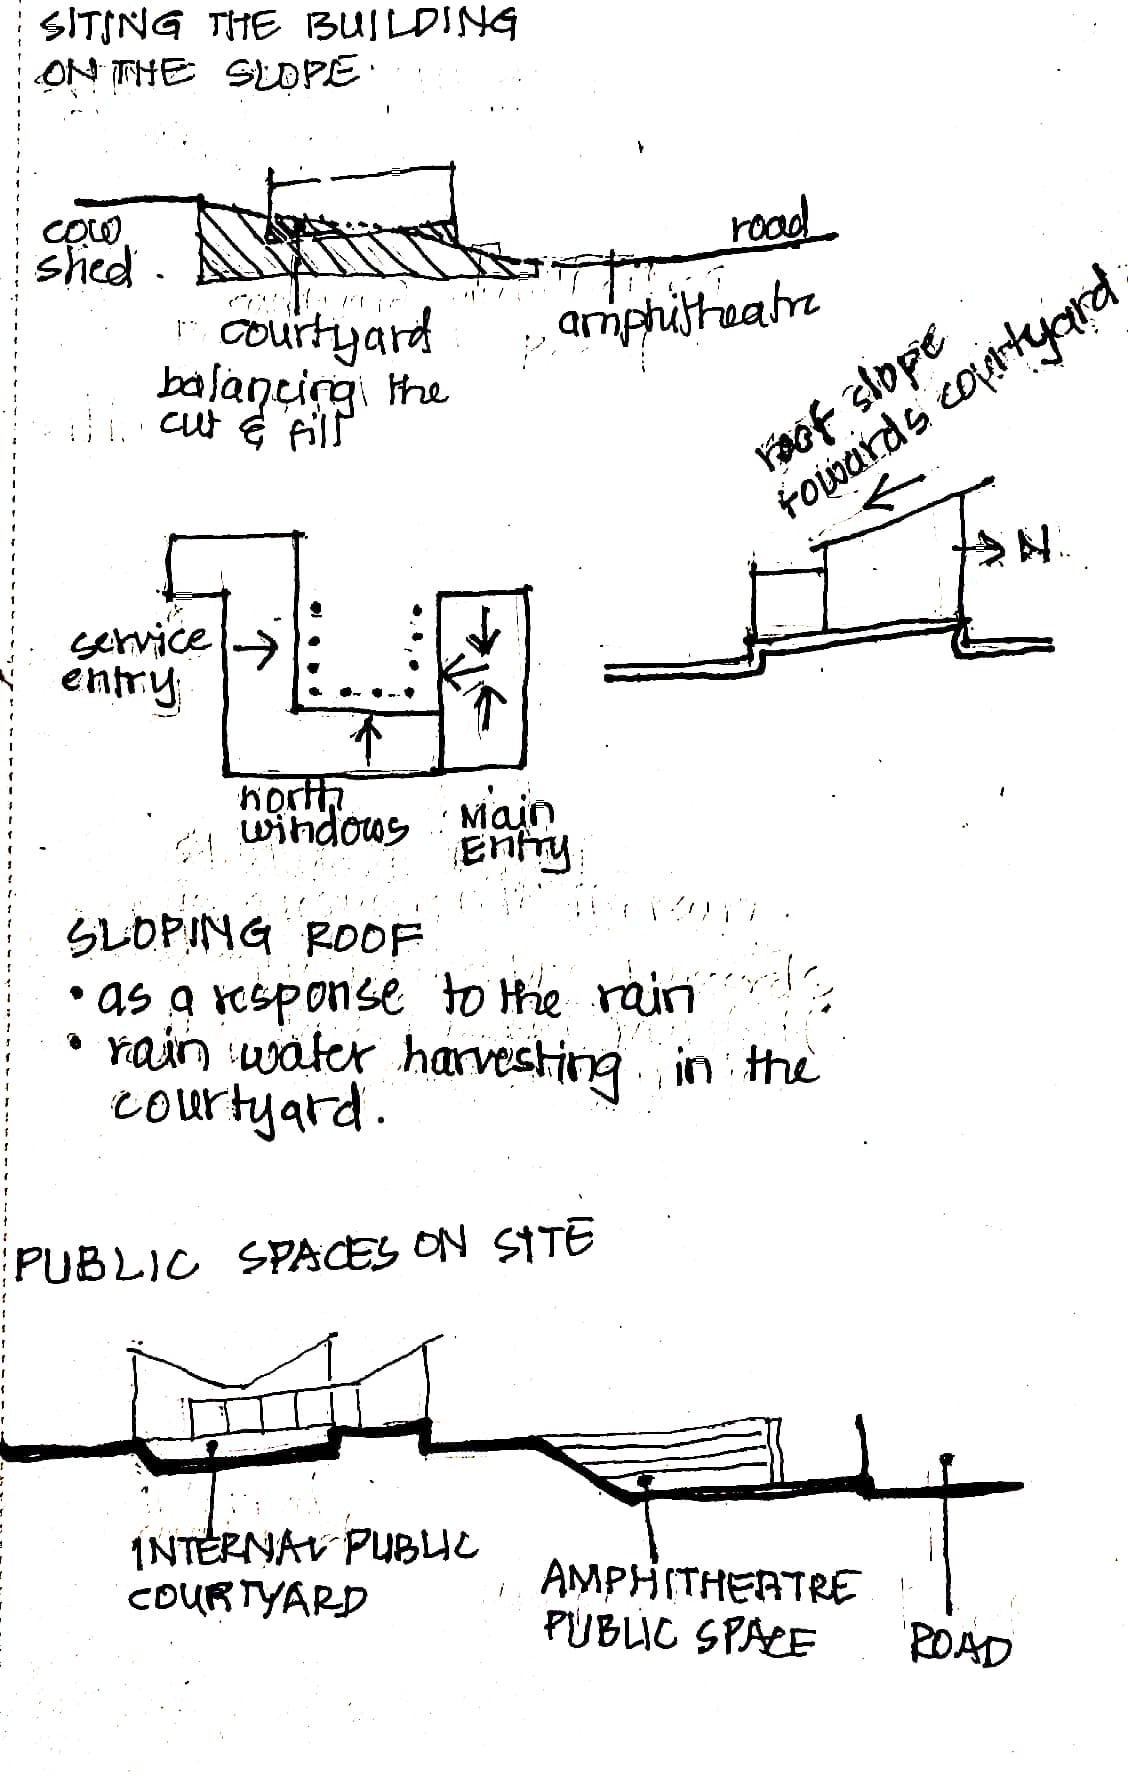 SITING THE BUILDING
ON THE SLOPE
cow
shed.
road
courtyard
balancing the
cut & fill
amphitheatre
roof slope
towards courtyard
N
service
entry
north
windows
Main
Entry
SLOPING ROOF
• as a response to the rain
• rain water harvesting in the
courtyard.
PUBLIC SPACES ON SITE
INTERNAL PUBLIC
COURTYARD
AMPHITHEATRE
PUBLIC SPACE
ROAD